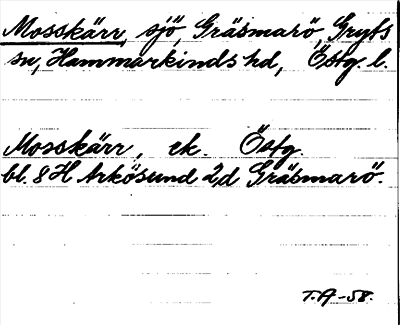 Mosskärr, sjö, Gräsmarö, Gryts
sn, Hammarkinds hd, Östg. l.
Mosskärr, ek. Östg.
bl. 8 H Arkösund 2,d Gräsmarö.
T.A -58.